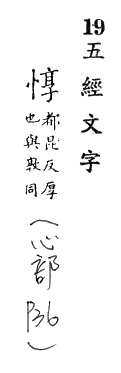 19五經文字
惇
都昆反厚
也與敦同
(心部 P36)